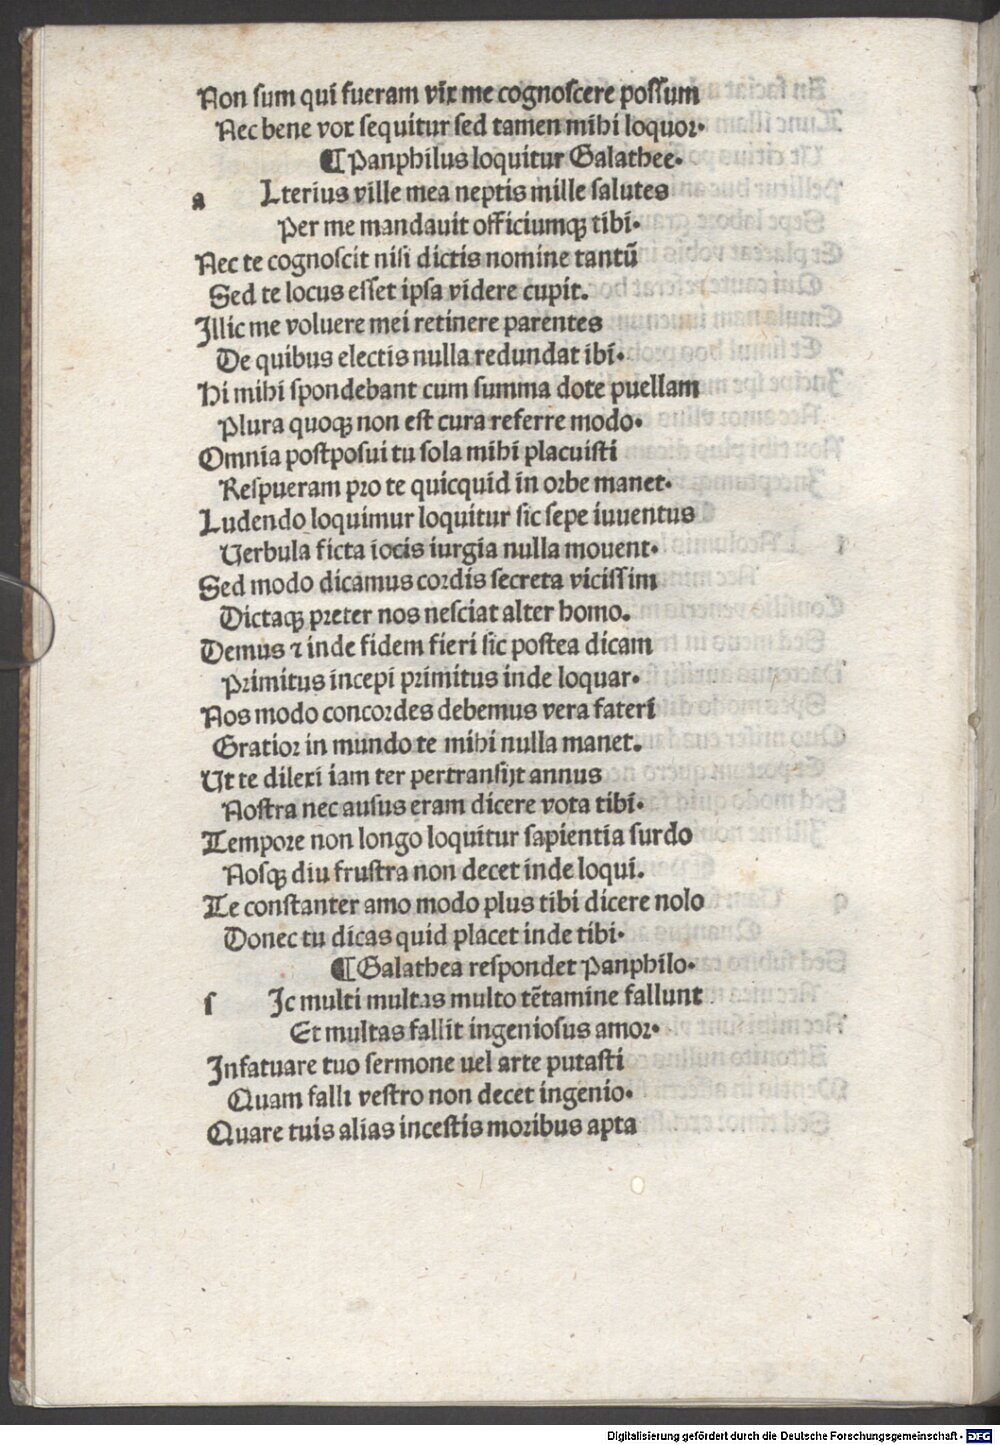 Non ſum qui fueram vix me cognoſcere poſſum
Nec bene vox ſequitur ſed tamen mihi loquor.
¶ Panphilus loquitur Galathee.
a Lterius ville mea neptis mille ſalutes
Per me mandauit officiumqꝫ tibi.
Nec te cognoſcit niſi dictis nomine tantū
Sed te locus eſſet ipſa videre cupit.
Illic me voluere mei retinere parentes
De quibus electis nulla redundat ibi.
Hi mihi ſpondebant cum ſumma dote puellam
Plura quoqꝫ non eſt cura referre modo.
Omnia poſtpoſui tu ſola mihi placuiſti
Reſpueram pro te quicquid in orbe manet.
Ludendo loquimur loquitur ſic ſepe iuuentus
Verbula ficta iocis iurgia nulla mouent.
Sed modo dicamus cordis ſecreta viciſſim
Dictaqꝫ preter nos neſciat alter homo.
Demus ⁊ inde fidem fieri ſic poſtea dicam
Primitus incepi primitus inde loquar.
Nos modo concordes debemus vera fateri
Gratior in mundo te mihi nulla manet.
Ut te dilexi iam ter pertranſijt annus
Noſtra nec auſus eram dicere vota tibi.
Tempore non longo loquitur ſapientia ſurdo
Noſqꝫ diu fruſtra non decet inde loqui.
Te conſtanter amo modo plus tibi dicere nolo
Donec tu dicas quid placet inde tibi.
¶ Galathea reſpondet Panphilo.
ſ Ic multi multas multo tētamine fallunt
Et multas fallit ingenioſus amor.
Infatuare tuo ſermone uel arte putaſti
Quam falli veſtro non decet ingenio.
Quare tuis alias inceſtis moribus apta
Digitalisierung gefördert durch die Deutsche Forschungsgemeinschaft - DFG